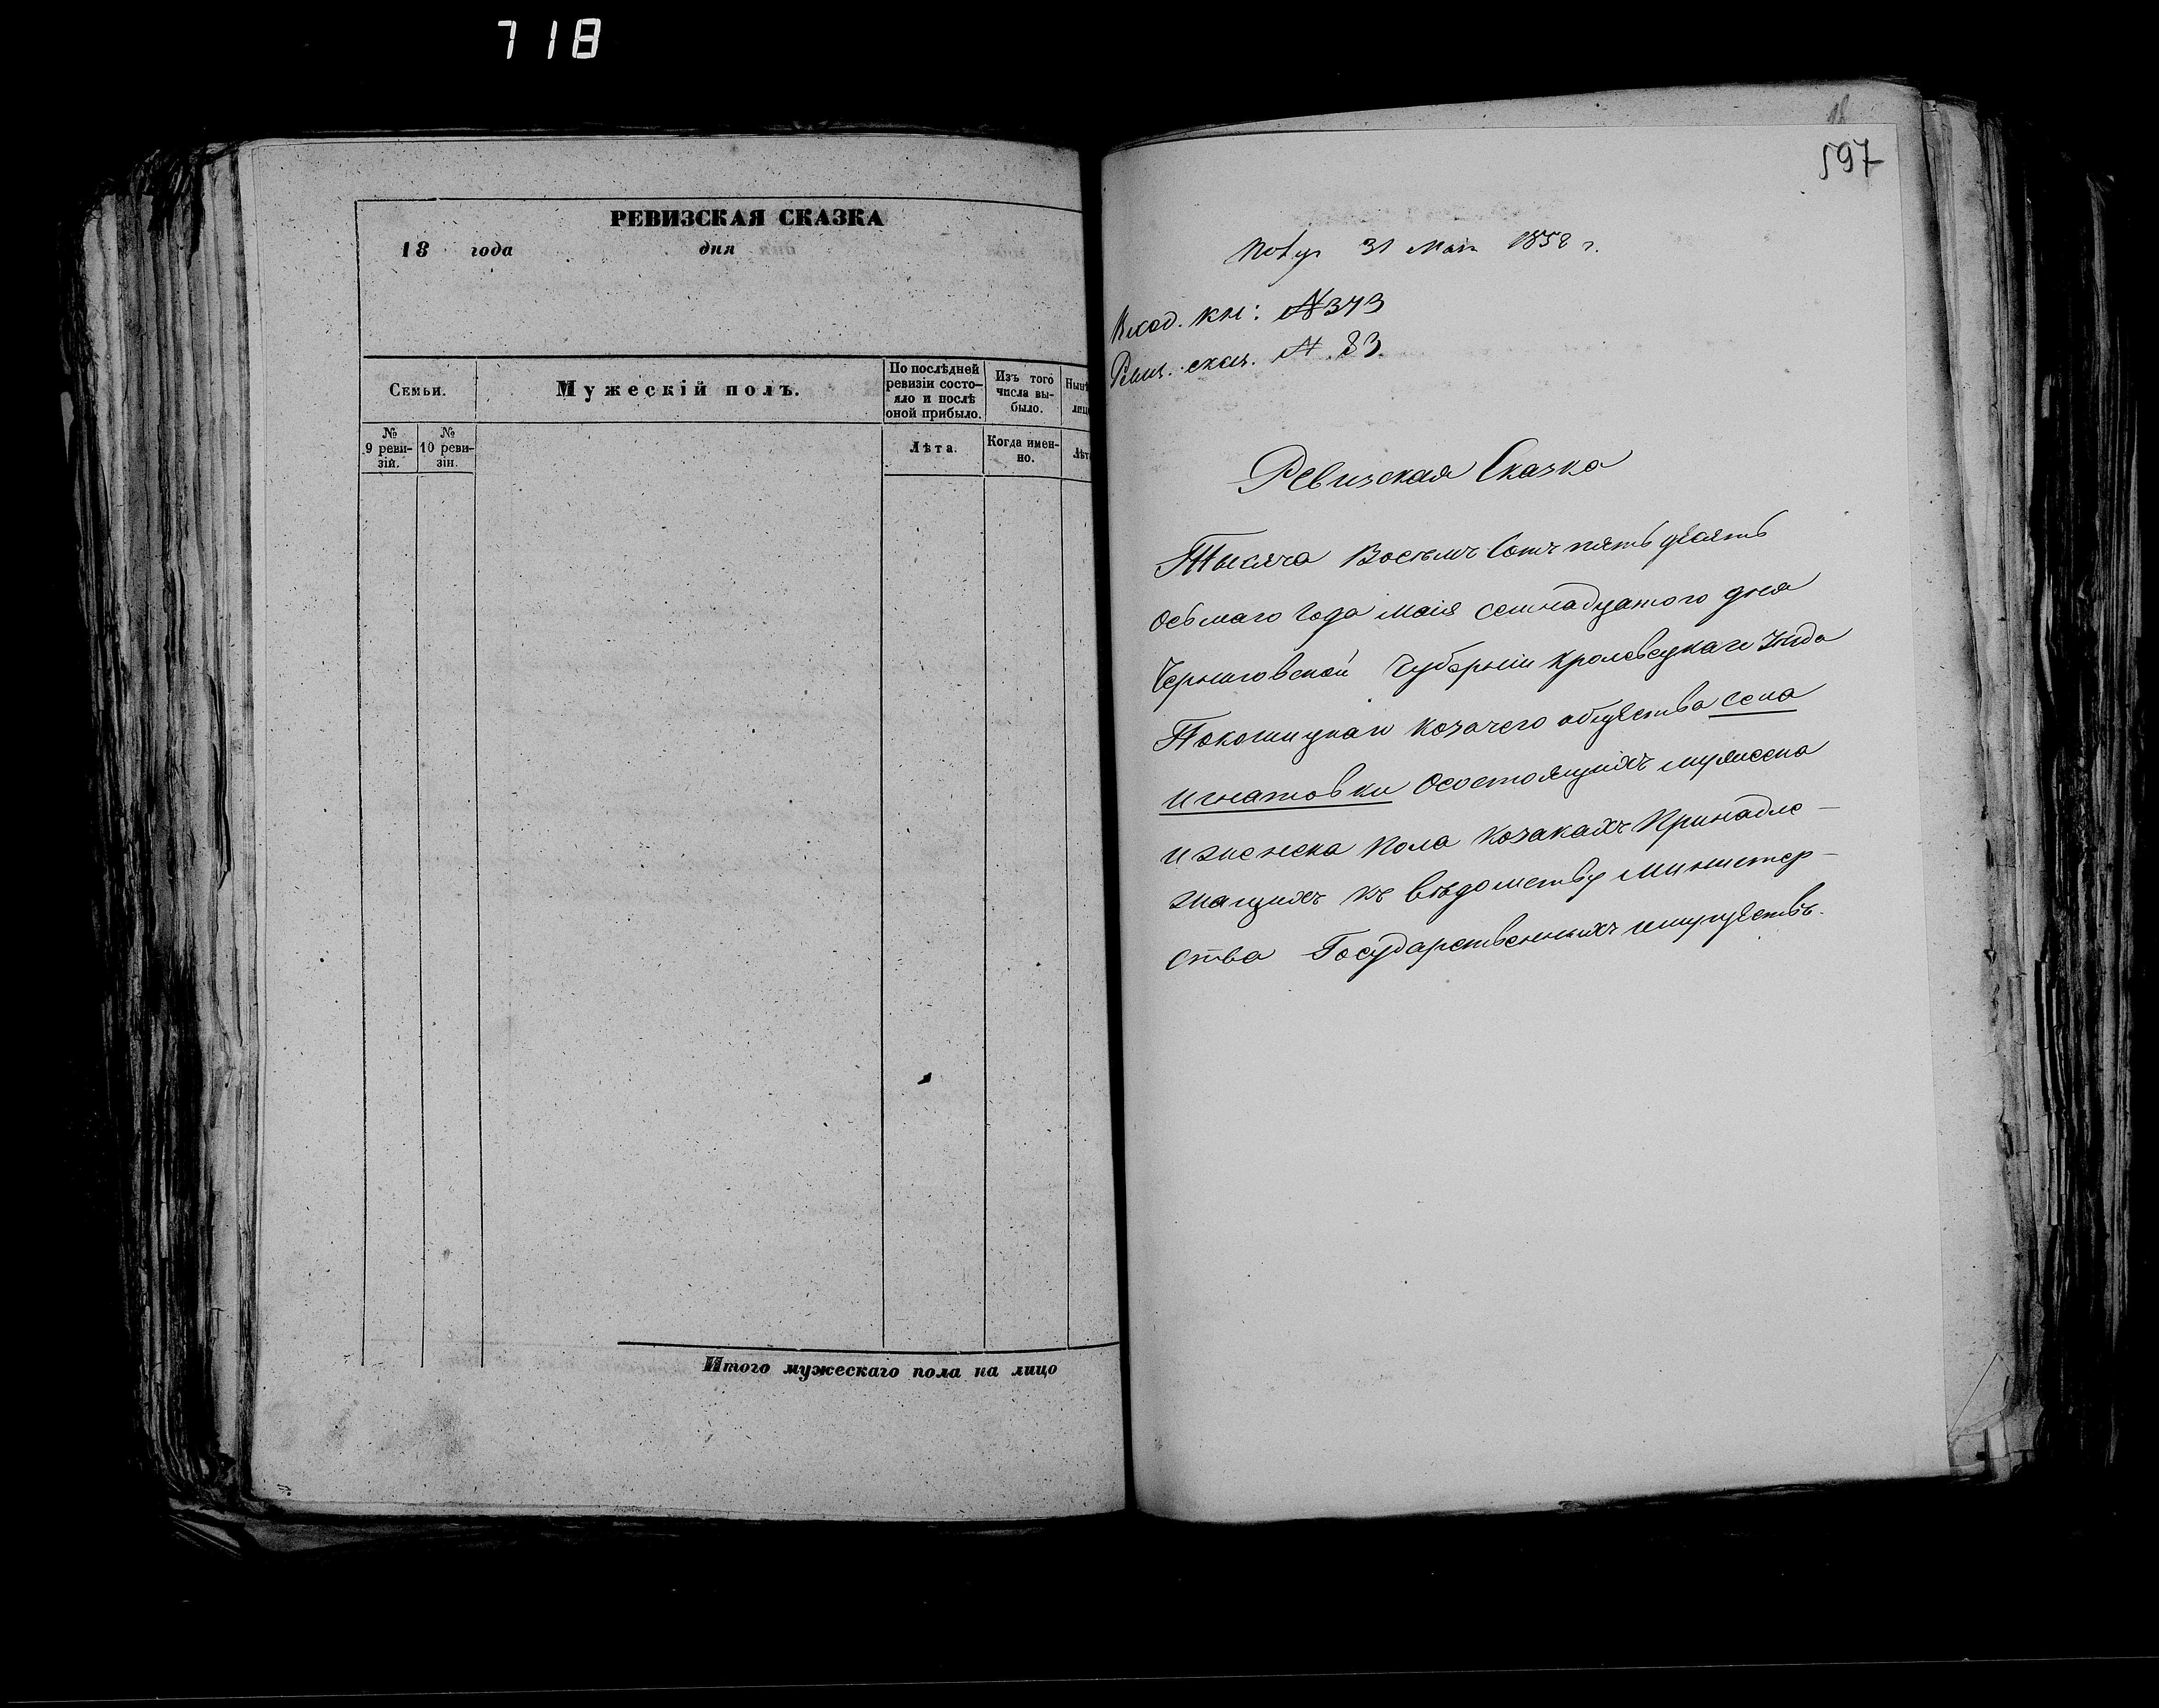 718
РЕВИЗСКАЯ СКАЗКА
18 года дня
Семьи.
Мужескій полъ.
По послѣдней ревизіи состо-
яло и послѣ
оной прибыло.
Изъ того
числа вы-
было.
№
9 реви-
зій.
№
10 реви-
зіи.
Лѣта.
Когда имен-
но.
Итого мужескаго пола на лицо
597
31 Мая 1858 г.
Вход. кн: № 373
Ревиз. сказ. № 83.
Ревизская Сказка
Тысяча Восемъ Сотъ пять десять
Осьмаго Года маія семнадцатого дня
Черниговской Губерніи Кролевецкаго Уѣзда
Покошицкаго козачего общества села
игнатовки Осостоящихъ мужеска
и женска пола козакахъ Принадле-
жащихъ къ вѣдомству Министер-
ства Государственныхъ имуществъ.